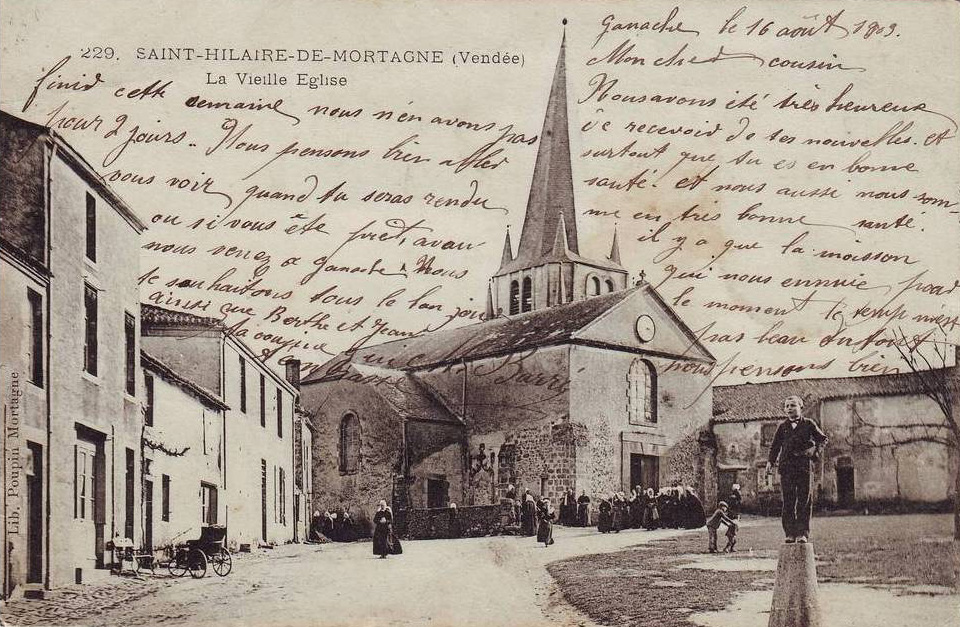 229. SAINT-HILAIRE-DE-MORTAGNE (Vendée)
La Vieille Eglise
Ganache le 16 août
Mon cher cousin
Nous avons été très heureux
de recevoir de tes nouvelles. et
surtout que tu es en bonne
santé. et nous aussi nous som-
me en très bonne santé.
il y a que la moisson
qui nous ennuie
le moment le temp
pas beau
nous pensons bien
finir cette semaine nous n'en avons pas
pour 2 jours. Nous pensons bien aller
vous voir quand tu seras rendu
ou si vous ête
nous venez a ganache Nous
te souhaitons tous le bon jour
ainsi que Berthe et
Lib. Poupin Mortagne